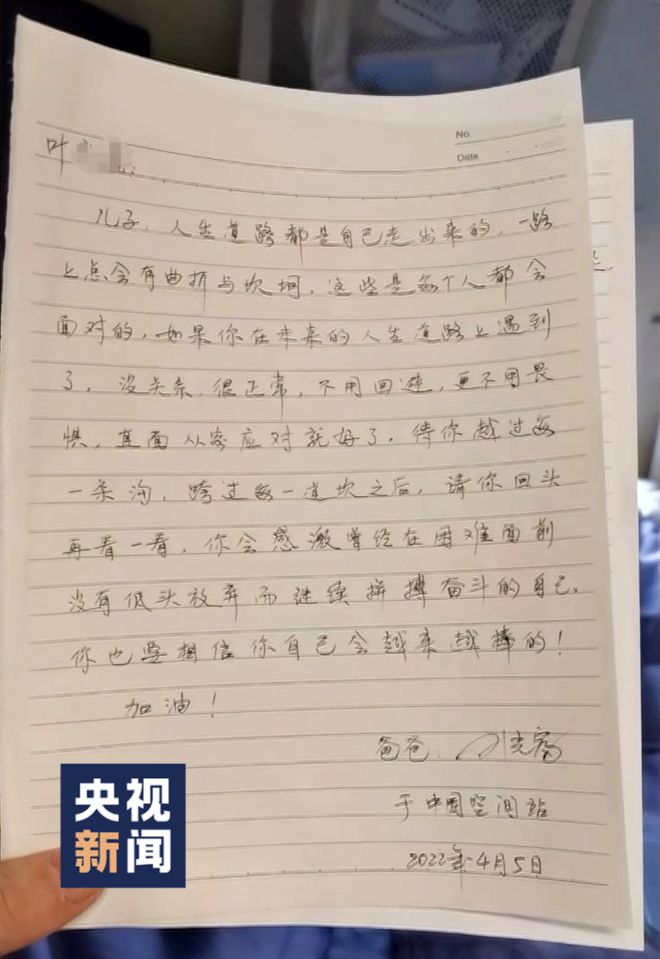 No.
Date
叶
儿子,人生道路都是自己走出来的,一路
上总会有曲折与坎坷,这些是每个人都会
面对的,如果你在未来的人生道路上遇到
了,没关系,很正常,不用回避,更不用畏
惧,直面从容应对就好了,待你越过每
一条沟,跨过每一道坎之后,请你回头
再看一看,你会感激曾经在困难面前
没有低头放弃而继续拼搏奋斗的自己。
你也要相信你自己会越来越棒的!
加油!
爸爸:叶光富
于中国空间站
2022年4月5日
央视
新闻